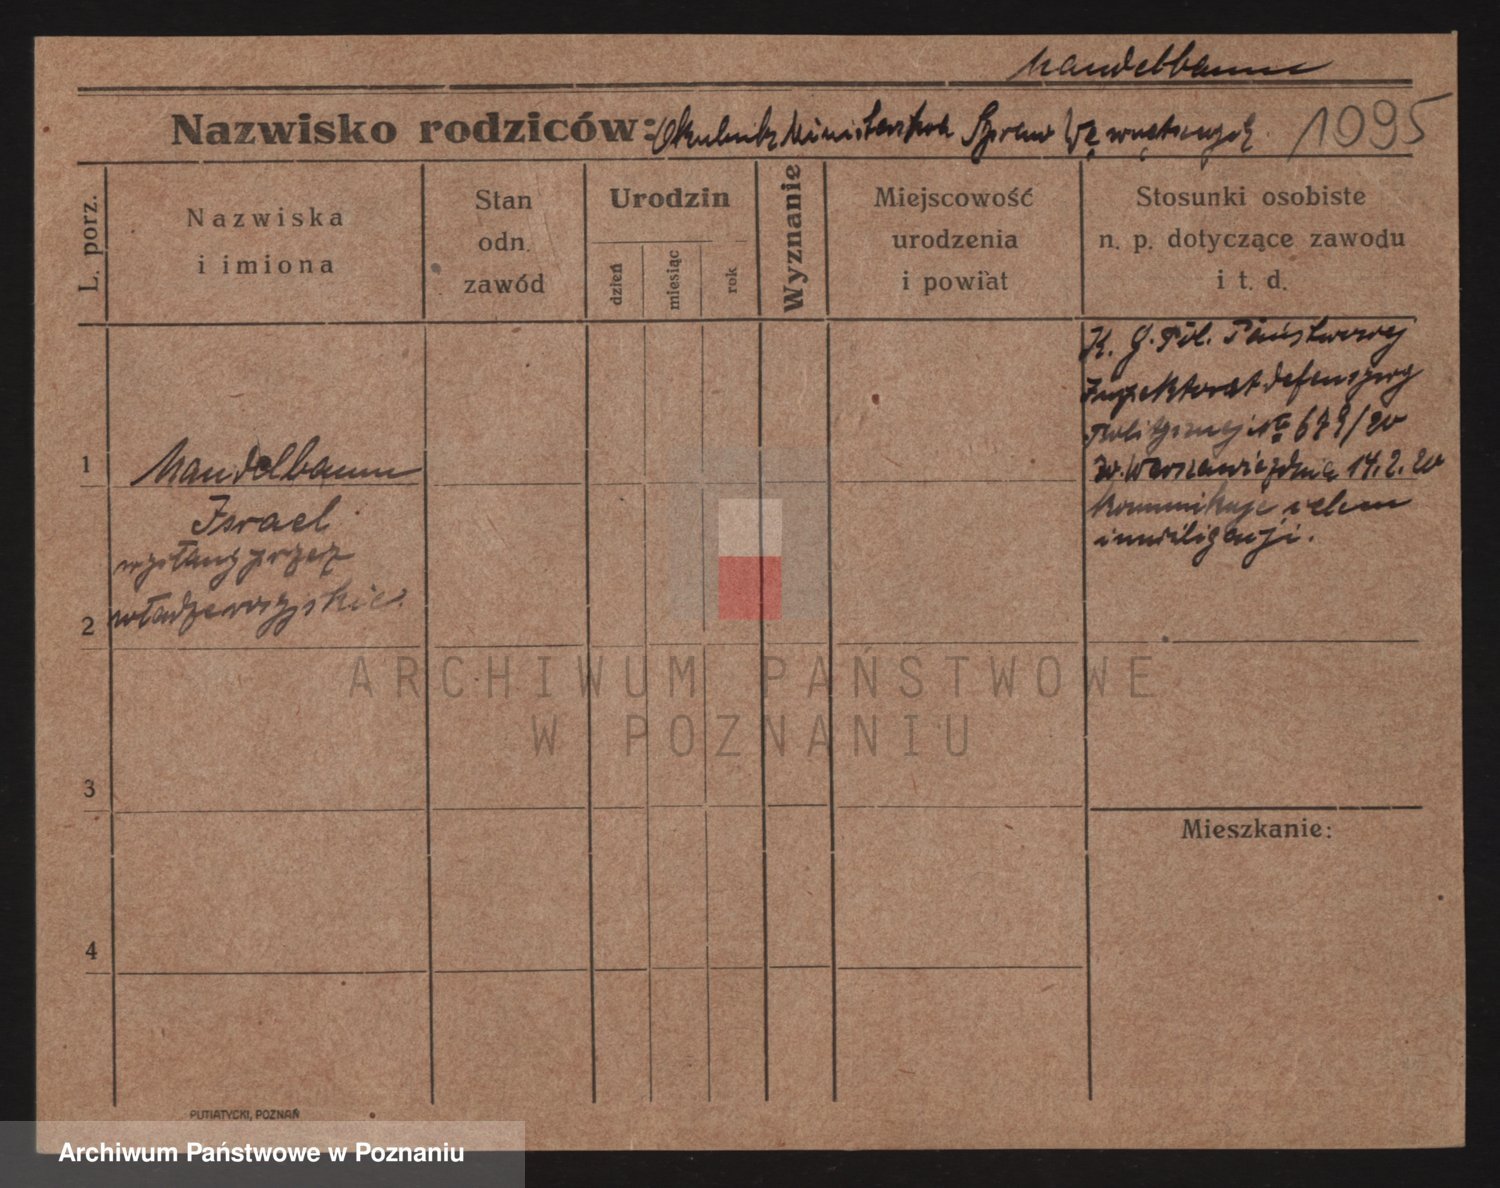 Mandelbaum
Nazwisko rodziców: Okulnik Ministerstwa Spraw Wewnętrznych. 1095
L. porz.
Nazwiska
i imiona
Stan
odn.
zawód
Urodzin
dzień
miesiąc
rok
Wyznanie
Miejscowość
urodzenia
i powiat
Stosunki osobiste
n. p. dotyczące zawodu
i t. d.
K. G. Pol. Państwowej
Inspektorat defenzywy
politycznej № 679/20
w Warszawie z dnia 14.2.20
komunikuje celem
inwiligacji.
1
Mandelbaum
Israel
przez
2
władze rosyjskie.
3
4
Mieszkanie:
ARCHIWUM PAŃSTWOWE
W POZNANIU
PUTIATYCKI, POZNAŃ
Archiwum Państwowe w Poznaniu